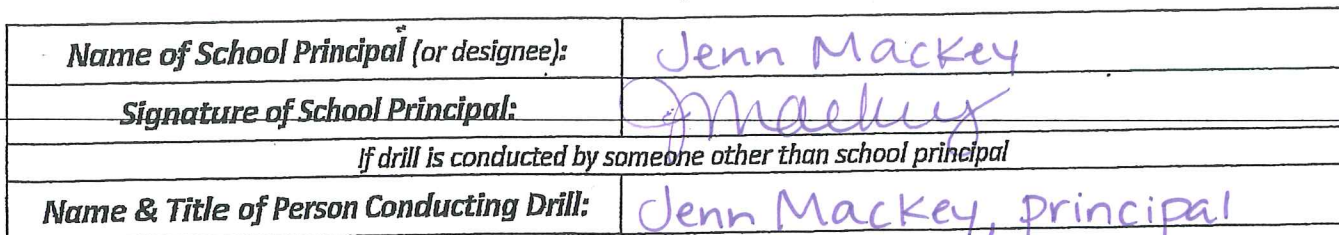 Name of School Principal (or designee): Jenn Mackey
Signature of School Principal: JMackey
If drill is conducted by someone other than school principal
Name & Title of Person Conducting Drill: Jenn Mackey, principal